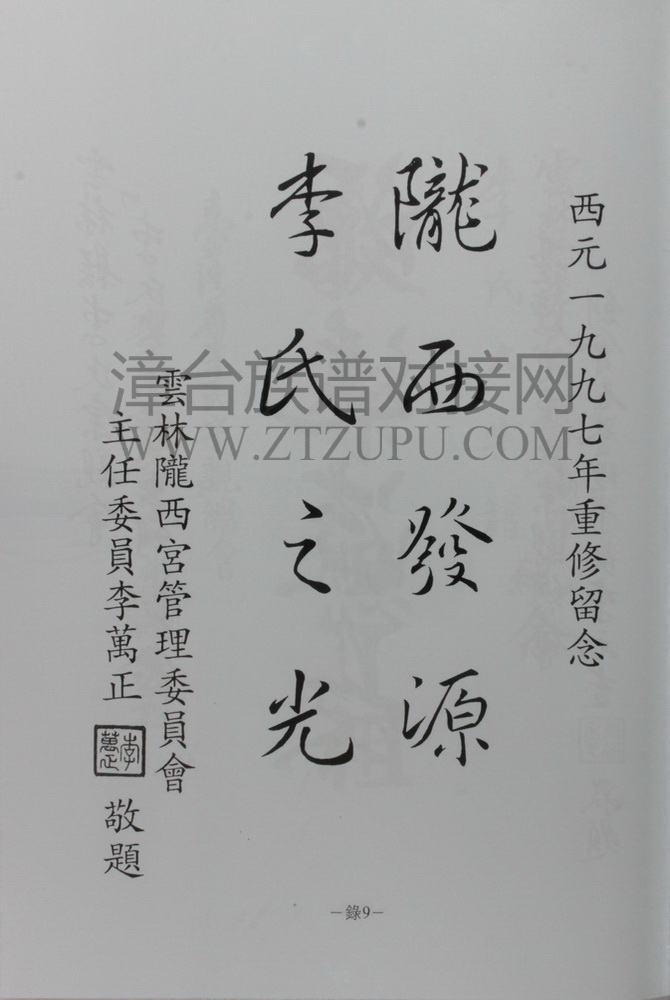 西元一九九七年重修留念
隴西發源
李氏之光
雲林隴西宮管理委員會
主任委員李萬正
李萬正
敬題
漳台族谱对接网
WWW.ZTZUPU.COM
－錄9－